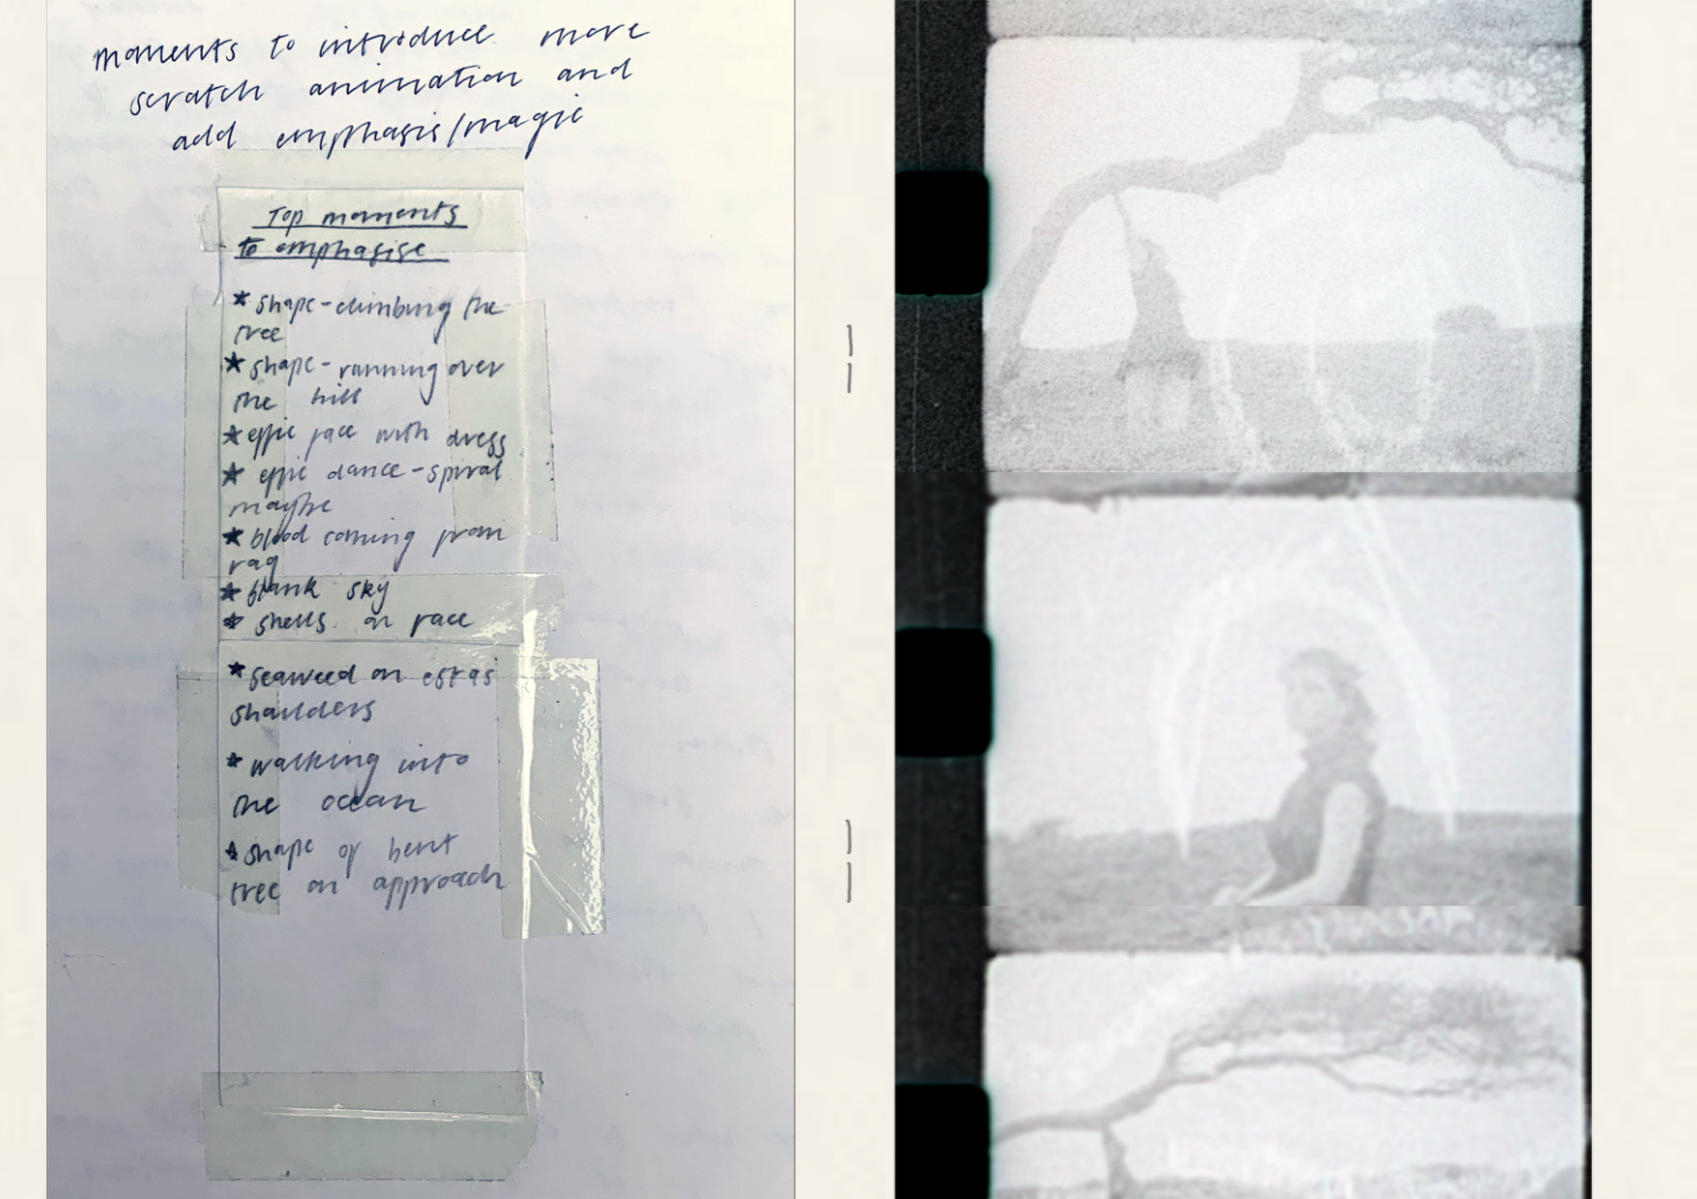 moments to introduce more
scratch animation and
add emphasis/magic
Top moments
to emphasise
* shape-climbing the
tree
* shape-running over
the hill
* effie face with dress
* effie dance-spiral
maybe
* blood coming from
rag
* blank sky
* shells on face
* seaweed on estas
shoulders
* walking into
the ocean
* shape of bent
tree on approach